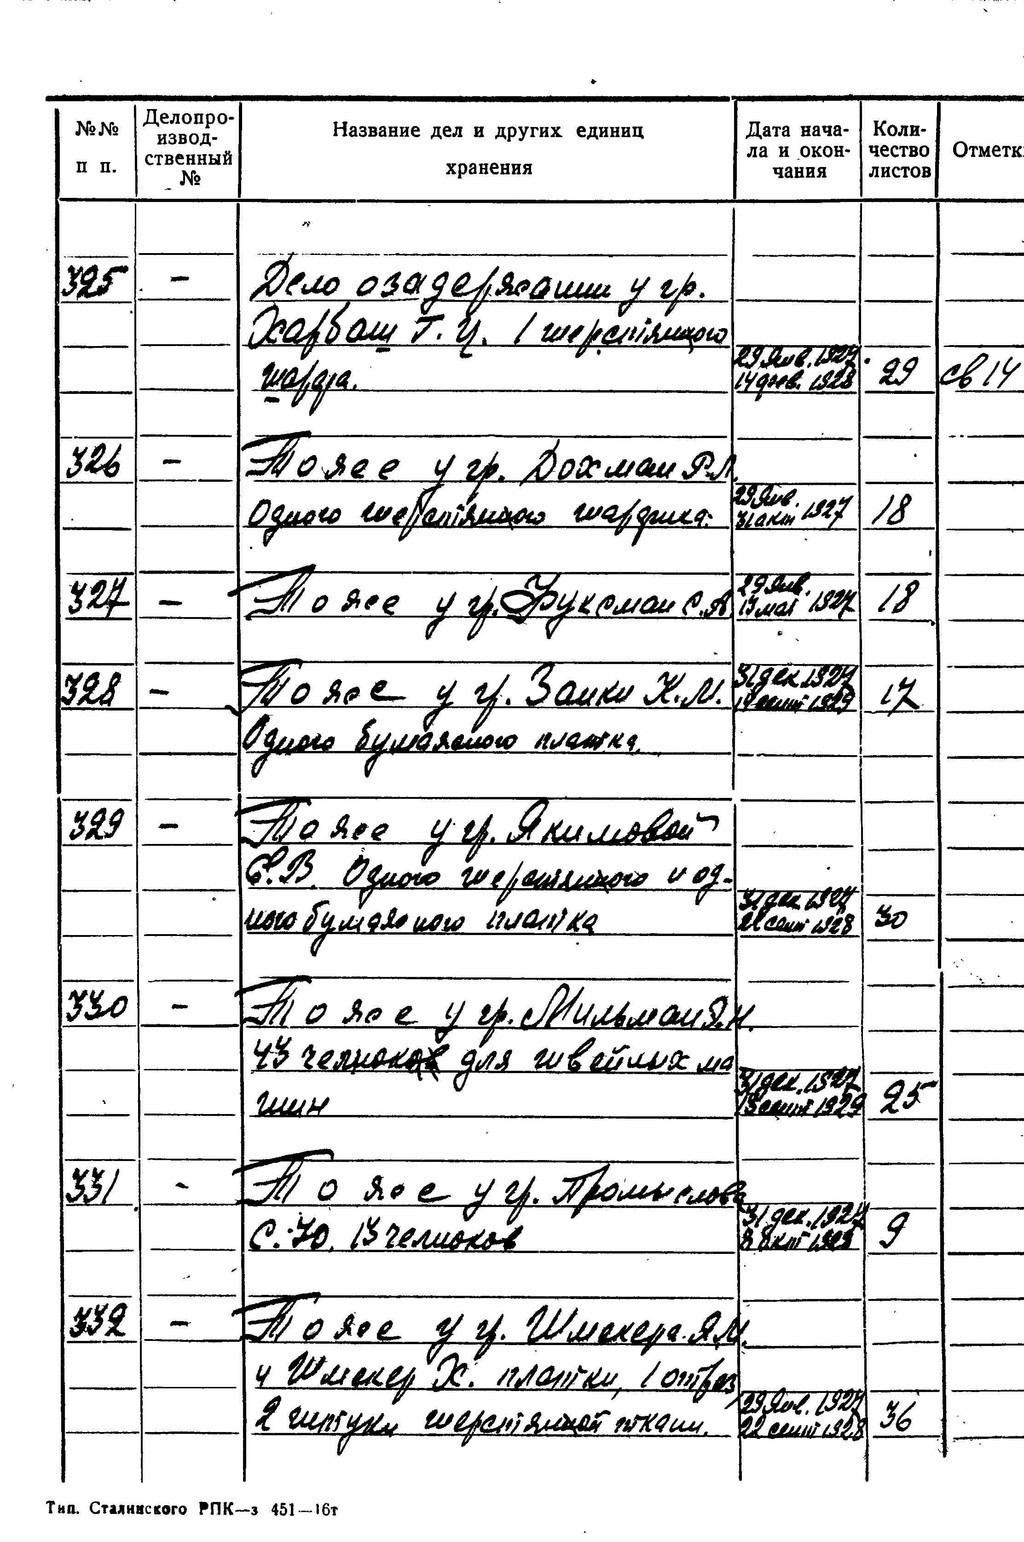 №№ п п.
Делопро-
извод-
ственный
№
Название дел и других единиц
хранения
Дата нача-
ла и окон-
чания
Коли-
чество
листов
Отметк
325 — Дело о задержании у гр.
Харбаш Г. Ц. 1 шерстяного
шарфа. 29 янв. 1927 14 фев. 1928 29 св 14
326 — То же у гр. Дохман Р.Л.
одного шерстяного шарфика. 29 янв. 31 окт 1927 18
327 — То же у гр. Фуксман С.А. 29 янв. 13 мая 1927 18
328 — То же у гр. Заики К.М. 31 дек 1927 19 сент 1929 17
Одного бумажного платка.
329 — То же у гр. Якимовой
Е.В. Одного шерстяного и од-
ного бумажного платка 31 дек 1927 21 сент 1928 30
330 — То же у гр. Мильман Я.Н.
43 челноков для швейных ма
шин 31 дек. 1927 13 сент 1929 25
331 - То же у гр. Промыслова
С.Ю. 13 челноков 31 дек. 1927 8 окт 9
332 — То же у гр. Шмекера Я.М.
и Шмекер Х. платки, 1 отрез
2 штуки шерстяной ткани. 29 янв. 1927 22 сент 1928 36
Тип. Сталинского РПК—з 451—16т